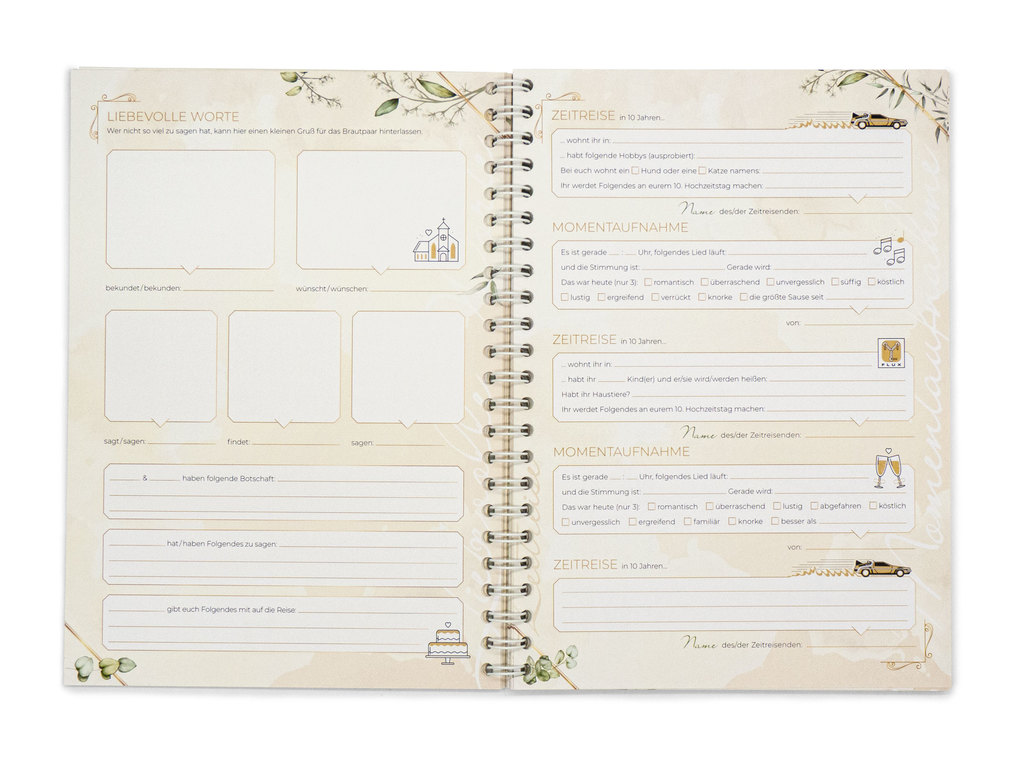 LIEBEVOLLE WORTE
Wer nicht so viel zu sagen hat, kann hier einen kleinen Gruß für das Brautpaar hinterlassen.
bekundet/bekunden:
wünscht/wünschen:
sagt/sagen:
findet:
sagen:
& haben folgende Botschaft:
hat/haben Folgendes zu sagen:
gibt euch Folgendes mit auf die Reise:
ZEITREISE in 10 Jahren...
... wohnt ihr in:
... habt folgende Hobbys (ausprobiert):
Bei euch wohnt ein Hund oder eine Katze namens:
Ihr werdet Folgendes an eurem 10. Hochzeitstag machen:
Name des/der Zeitreisenden:
MOMENTAUFNAHME
Es ist gerade : Uhr, folgendes Lied läuft:
und die Stimmung ist: Gerade wird:
Das war heute (nur 3): romantisch überraschend unvergesslich süffig köstlich
lustig ergreifend verrückt knorke die größte Sause seit
von:
ZEITREISE in 10 Jahren...
FLUX
... wohnt ihr in:
... habt ihr Kind(er) und er/sie wird/werden heißen:
Habt ihr Haustiere?
Ihr werdet Folgendes an eurem 10. Hochzeitstag machen:
Name des/der Zeitreisenden:
MOMENTAUFNAHME
Es ist gerade : Uhr, folgendes Lied läuft:
und die Stimmung ist: Gerade wird:
Das war heute (nur 3): romantisch überraschend lustig abgefahren köstlich
unvergesslich ergreifend familiär knorke besser als
von:
ZEITREISE in 10 Jahren...
Name des/der Zeitreisenden: